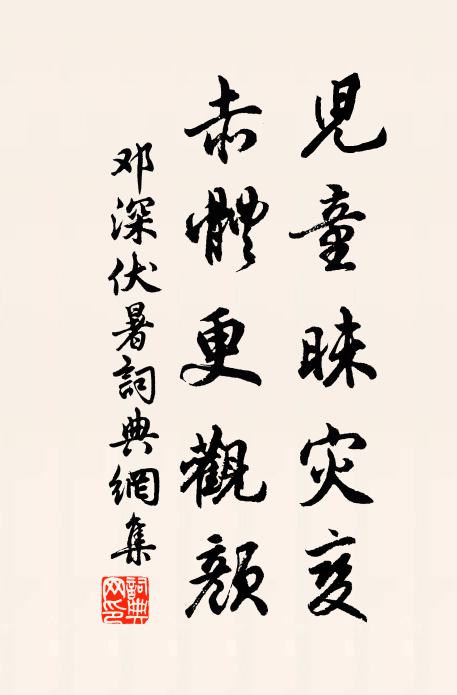 兒童昧灾变
赤體更觀顏
邓深伏暑詞典網集
詞典网印